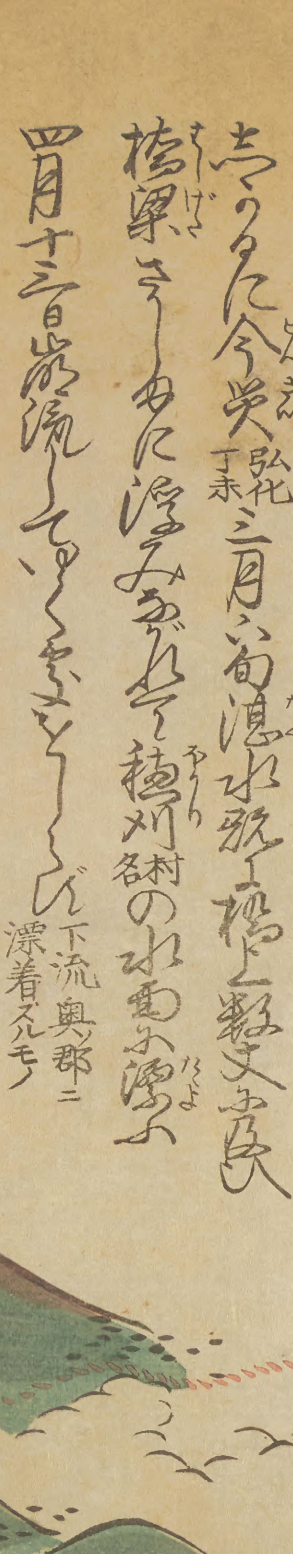 志かるに今災弘化丁未三月下旬湛水既に橋上数丈に及び
橋梁さかしまに浮みながれて穂刈村名の水面に漂ふ
四月十三日崩流してゆく處をしらず下流奥ノ郡ニ漂着スルモノ